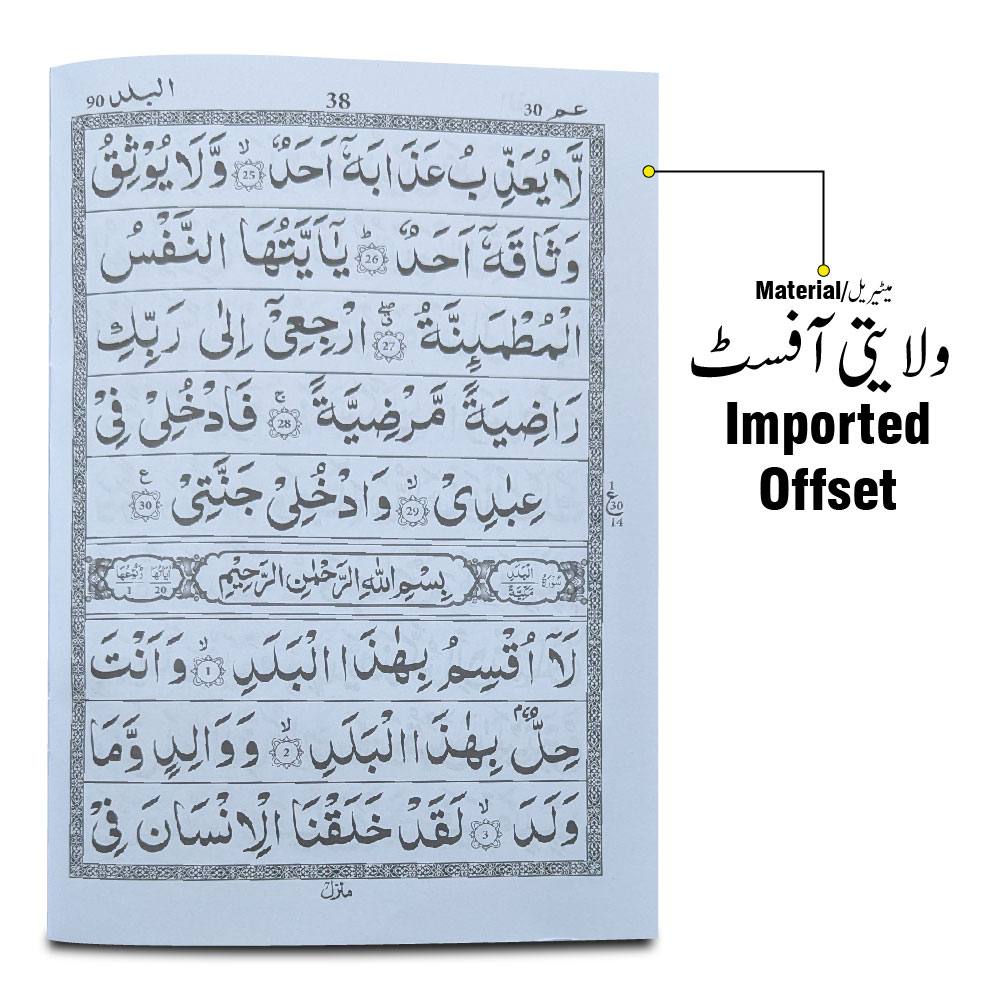 البلد 90
38
عم 30
لَّا يُعَذِّبُ عَذَابَهٗۤ اَحَدٌ ۙ25 وَّلَا يُوْثِقُ
وَثَاقَهٗۤ اَحَدٌ ؕ26 يٰۤاَيَّتُهَا النَّفْسُ
الْمُطْمَئِنَّةُ 27 ارْجِعِیْۤ اِلٰی رَبِّكِ
رَاضِيَةً مَّرْضِيَّةً ۚ28 فَادْخُلِیْ فِیْ
عِبٰدِیْ ۙ29 وَادْخُلِیْ جَنَّتِیْ 30 ع
1
ع
30
14
سُوْرَةُ الْبَلَدِ مَكِّيَّةٌ
بِسْمِ اللهِ الرَّحْمٰنِ الرَّحِيْمِ
اٰيَاتُهَا 20 رُكُوْعُهَا 1
لَاۤ اُقْسِمُ بِهٰذَا الْبَلَدِ ۙ1 وَاَنْتَ
حِلٌّۢ بِهٰذَا الْبَلَدِ ۙ2 وَوَالِدٍ وَّمَا
وَلَدَ ۙ3 لَقَدْ خَلَقْنَا الْاِنْسَانَ فِیْ
منزل
Material/میٹیریل
ولایتی آفسٹ
Imported
Offset